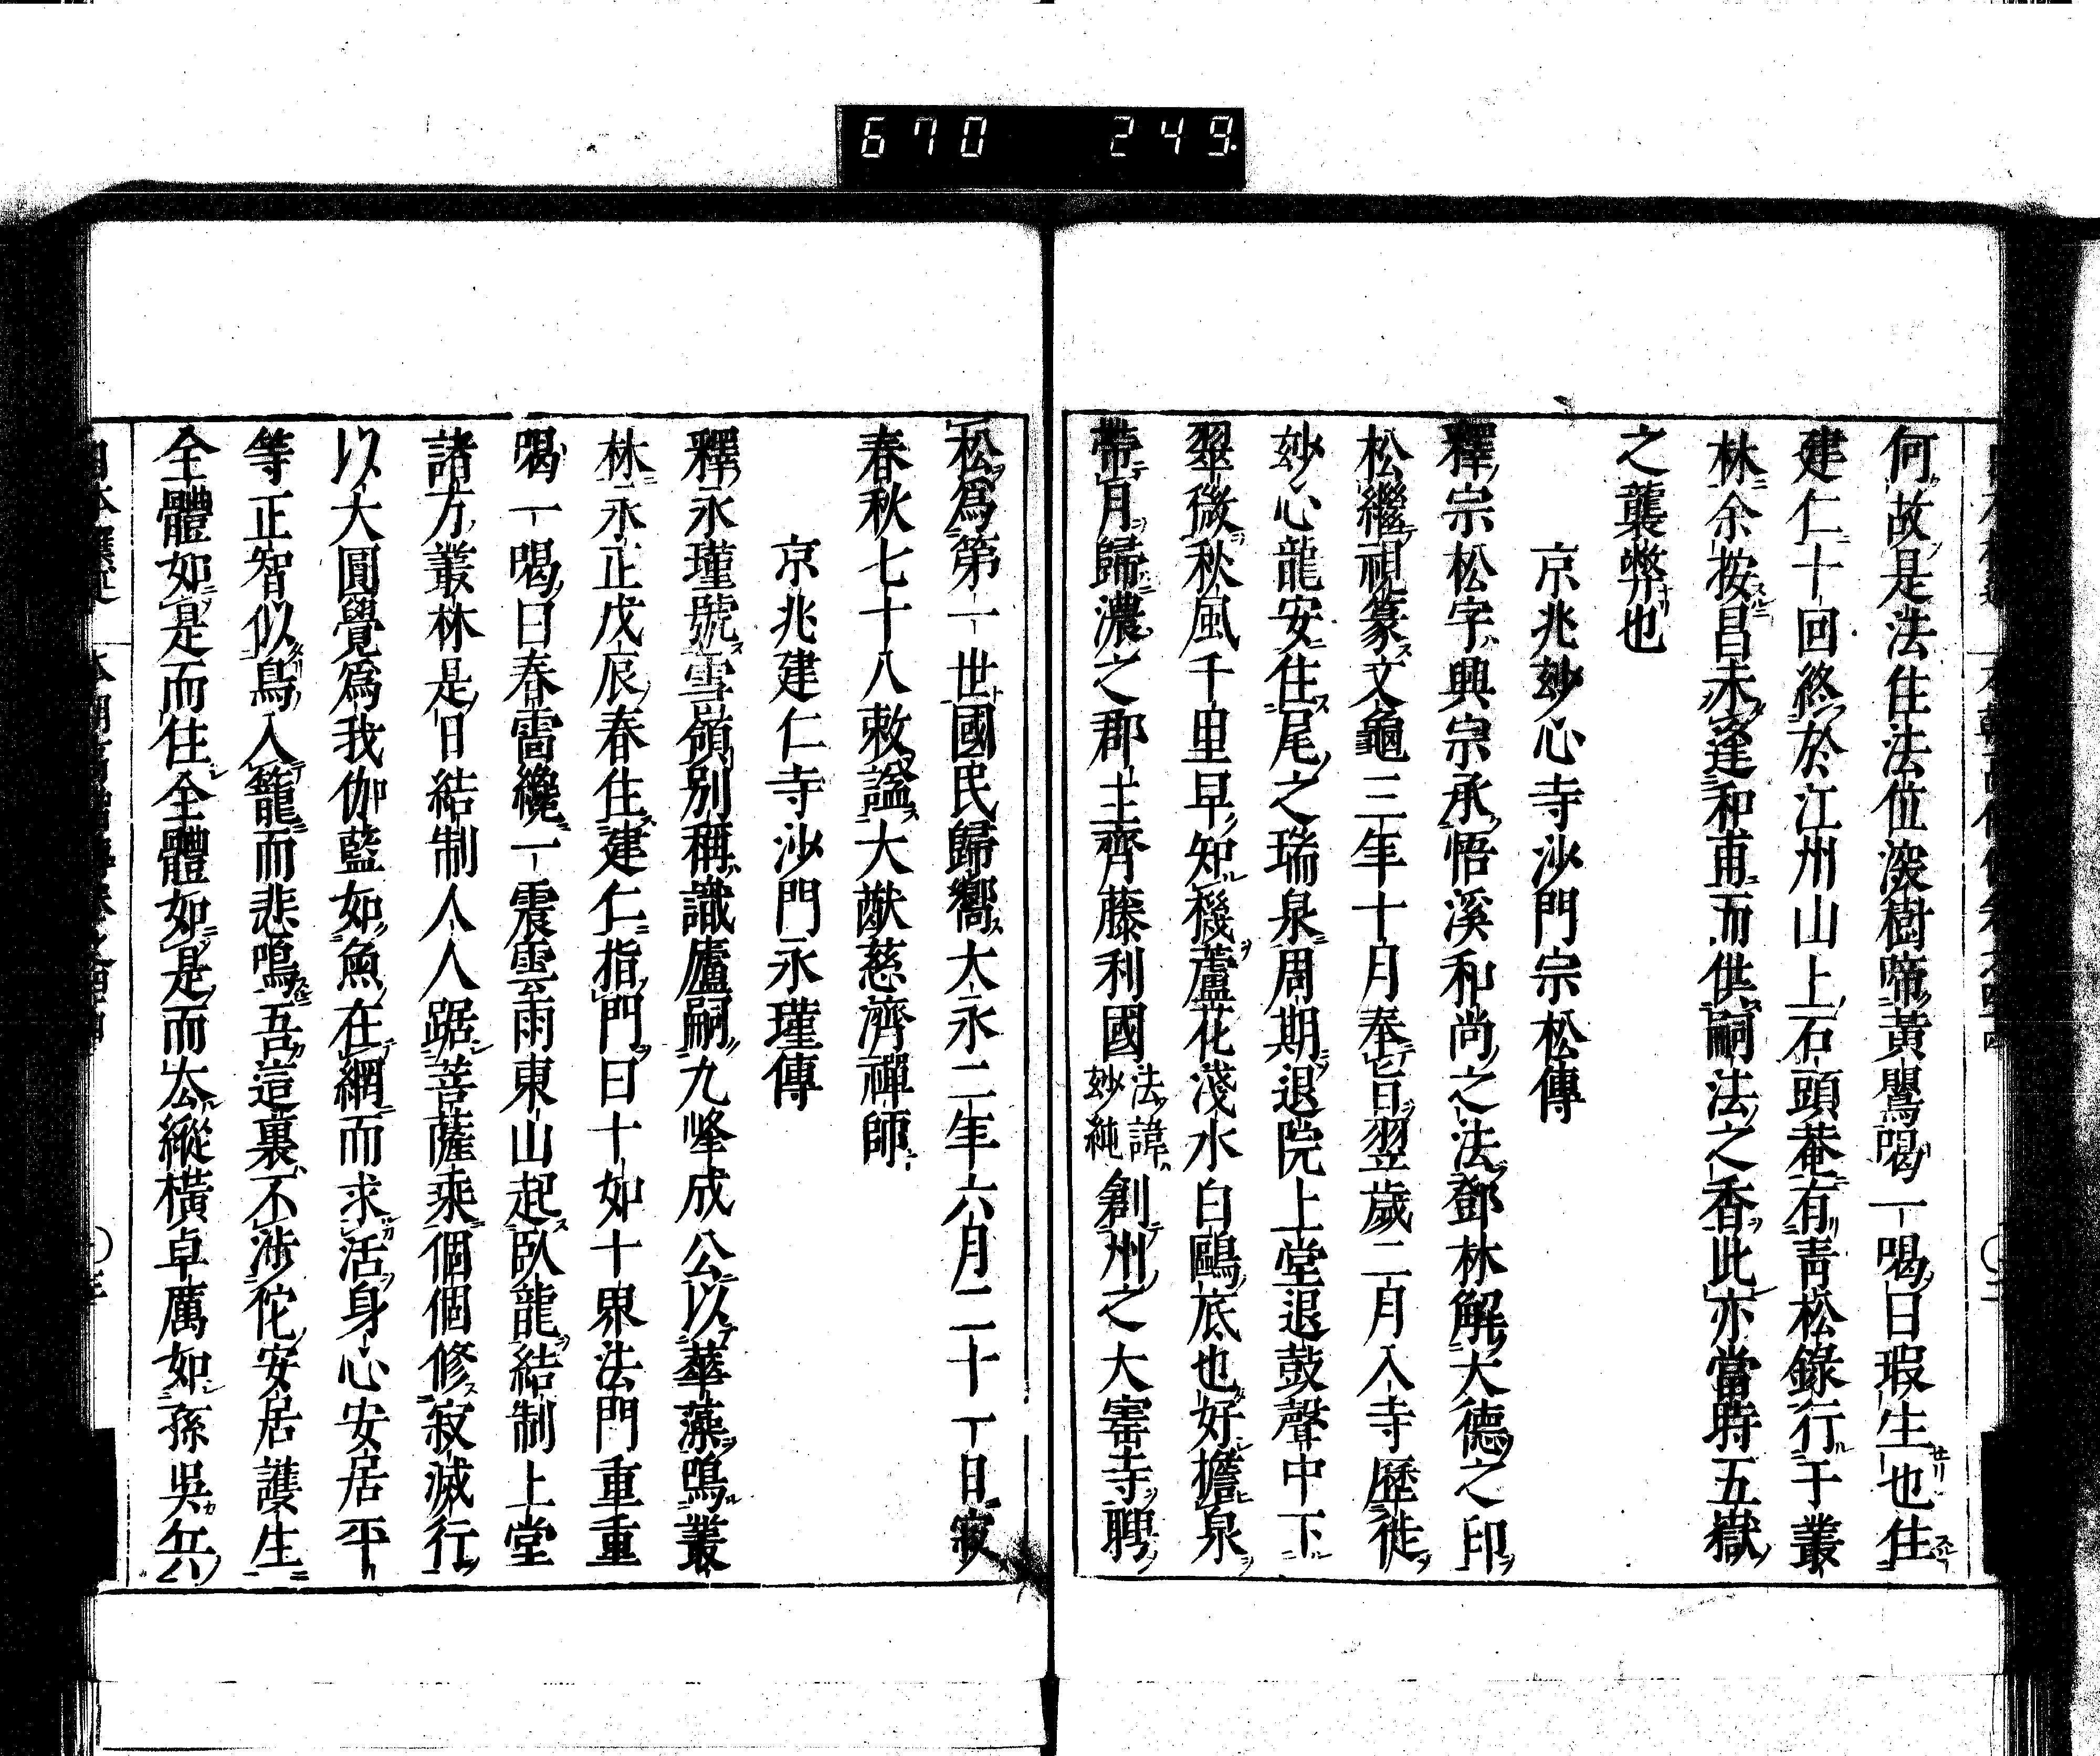 670 249
何故是法住法位深樹啼黃鸎喝一喝曰瑕生也住
建仁十回終於江州山上石頭菴有青松錄行于叢
林余按昌未逢和甫而供嗣法之香此亦當時五嶽
之襲弊也
京兆妙心寺沙門宗松傳
釋宗松字興宗承悟溪和尚之法鄧林解大德之印
松繼視篆文龜三年十月奉旨翌歲二月入寺歷徙
妙心龍安住尾之瑞泉周期退院上堂退鼓聲中下
翠微秋風千里早知機蘆花淺水白鷗底也好擔泉
帶月歸濃之郡主齊藤利國法諱妙純創州之大寶寺聘
松爲第一世國民歸嚮大永二年六月二十一日寂
春秋七十八敕謚大猷慈濟禪師
京兆建仁寺沙門永瑾傳
釋永瑾號雪嶺別稱識廬嗣九峰成公以華藻鳴叢
林永正戊辰春住建仁指門曰十如十界法門重重
喝一喝曰春雷纔一震雲雨東山起臥龍結制上堂
諸方叢林是日結制人人踞菩薩乘個個修寂滅行
以大圓覺爲我伽藍如魚在網而求活身心安居平
等正智似鳥入籠而悲鳴吾這裏不涉佗安居護生
全體如是而住全體如是而去縱橫卓厲如孫吳兵